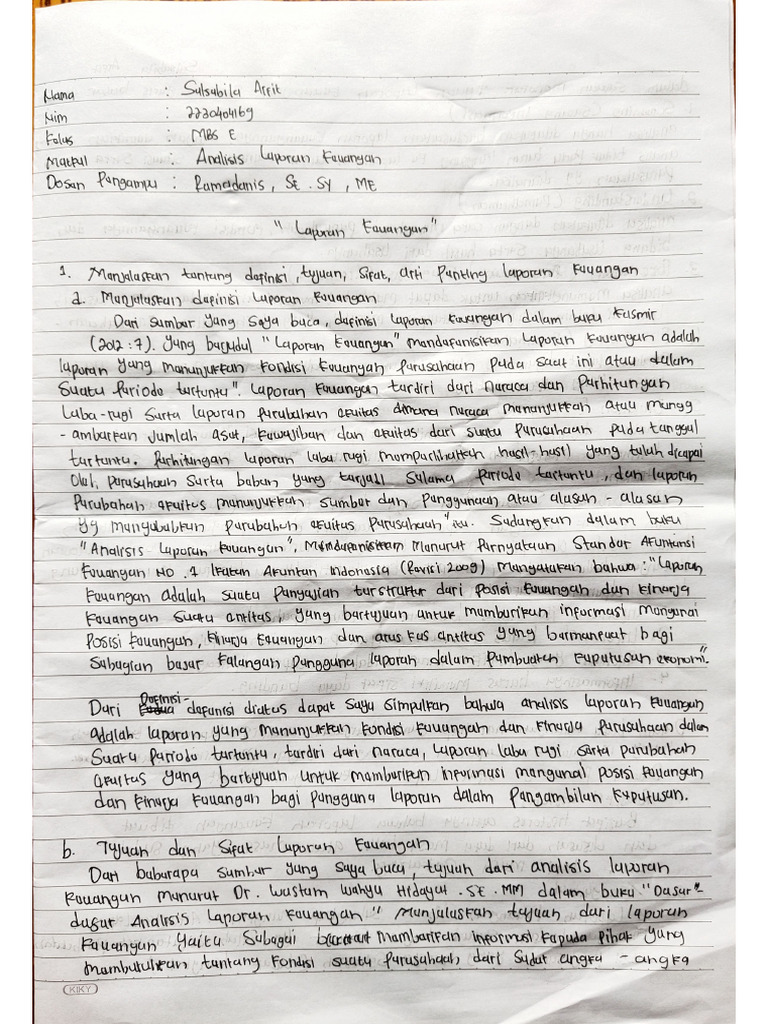 Nama : Salsabila Arfit
Nim : 2230404169
Kelas : MBS E
Matkul : Analisis Laporan Keuangan
Dosen Pengampu : Ramadanis, SE.Sy, ME
"Laporan Keuangan"
1. Menjelaskan tentang definisi, tujuan, sifat, arti penting laporan keuangan
a. Menjelaskan definisi laporan keuangan
Dari sumber yang saya baca, definisi laporan keuangan dalam buku kasmir
(2012:7). yang berjudul "Laporan keuangan" mendefenisikan laporan keuangan adalah
laporan yang menunjukkan kondisi keuangan perusahaan pada saat ini atau dalam
suatu periode tertentu". Laporan keuangan terdiri dari neraca dan perhitungan
laba-rugi serta laporan perubahan ekuitas dimana neraca menunjukkan atau mengg
-ambarkan jumlah aset, kewajiban dan ekuitas dari suatu perusahaan pada tanggal
tertentu. Perhitungan laporan laba rugi memperlihatkan hasil-hasil yang telah dicapai
oleh perusahaan serta beban yang terjadi selama periode tertentu, dan laporan
perubahan ekuitas menunjukkan sumber dan penggunaan atau alasan-alasan
yg mengebabkan perubahan ekuitas perusahaan" itu. Sedangkan dalam buku
"Analisis Laporan keuangan", Menurut Pernyataan Standar Akuntansi
keuangan NO.1 Ikatan Akuntan Indonesia (Revisi 2009) Mengatakan bahwa: "Laporan
keuangan adalah suatu penyajian terstruktur dari posisi keuangan dan kinerja
keuangan suatu entitas, yang bertujuan untuk memberikan informasi mengenai
posisi keuangan, kinerja keuangan dan arus kas entitas yang bermanfaat bagi
sebagian besar kalangan pengguna laporan dalam pembuatan keputusan ekonomi".
Dari Definisi- defenisi diatas dapat saya simpulkan bahwa analisis laporan keuangan
adalah laporan yang menunjukkan kondisi keuangan dan kinerja perusahaan dalam
suatu periode tertentu, terdiri dari neraca, laporan laba rugi serta perubahan
ekuitas yang bertujuan untuk memberikan informasi mengenai posisi keuangan
dan kinerja keuangan bagi pengguna laporan dalam pengambilan keputusan.
b. Tujuan dan Sifat Laporan keuangan
Dari beberapa sumber yang saya baca, tujuan dari analisis laporan
keuangan menurut Dr. Wastam Wahyu Hidayat .SE.MM dalam buku "Dasar-
dasar Analisis Laporan keuangan" Menjelaskan tujuan dari laporan
keuangan yaitu sebagai memberikan informasi kepada pihak yang
membutuhkan tentang kondisi suatu perusahaan, dari sudut angka-angka
KIKY